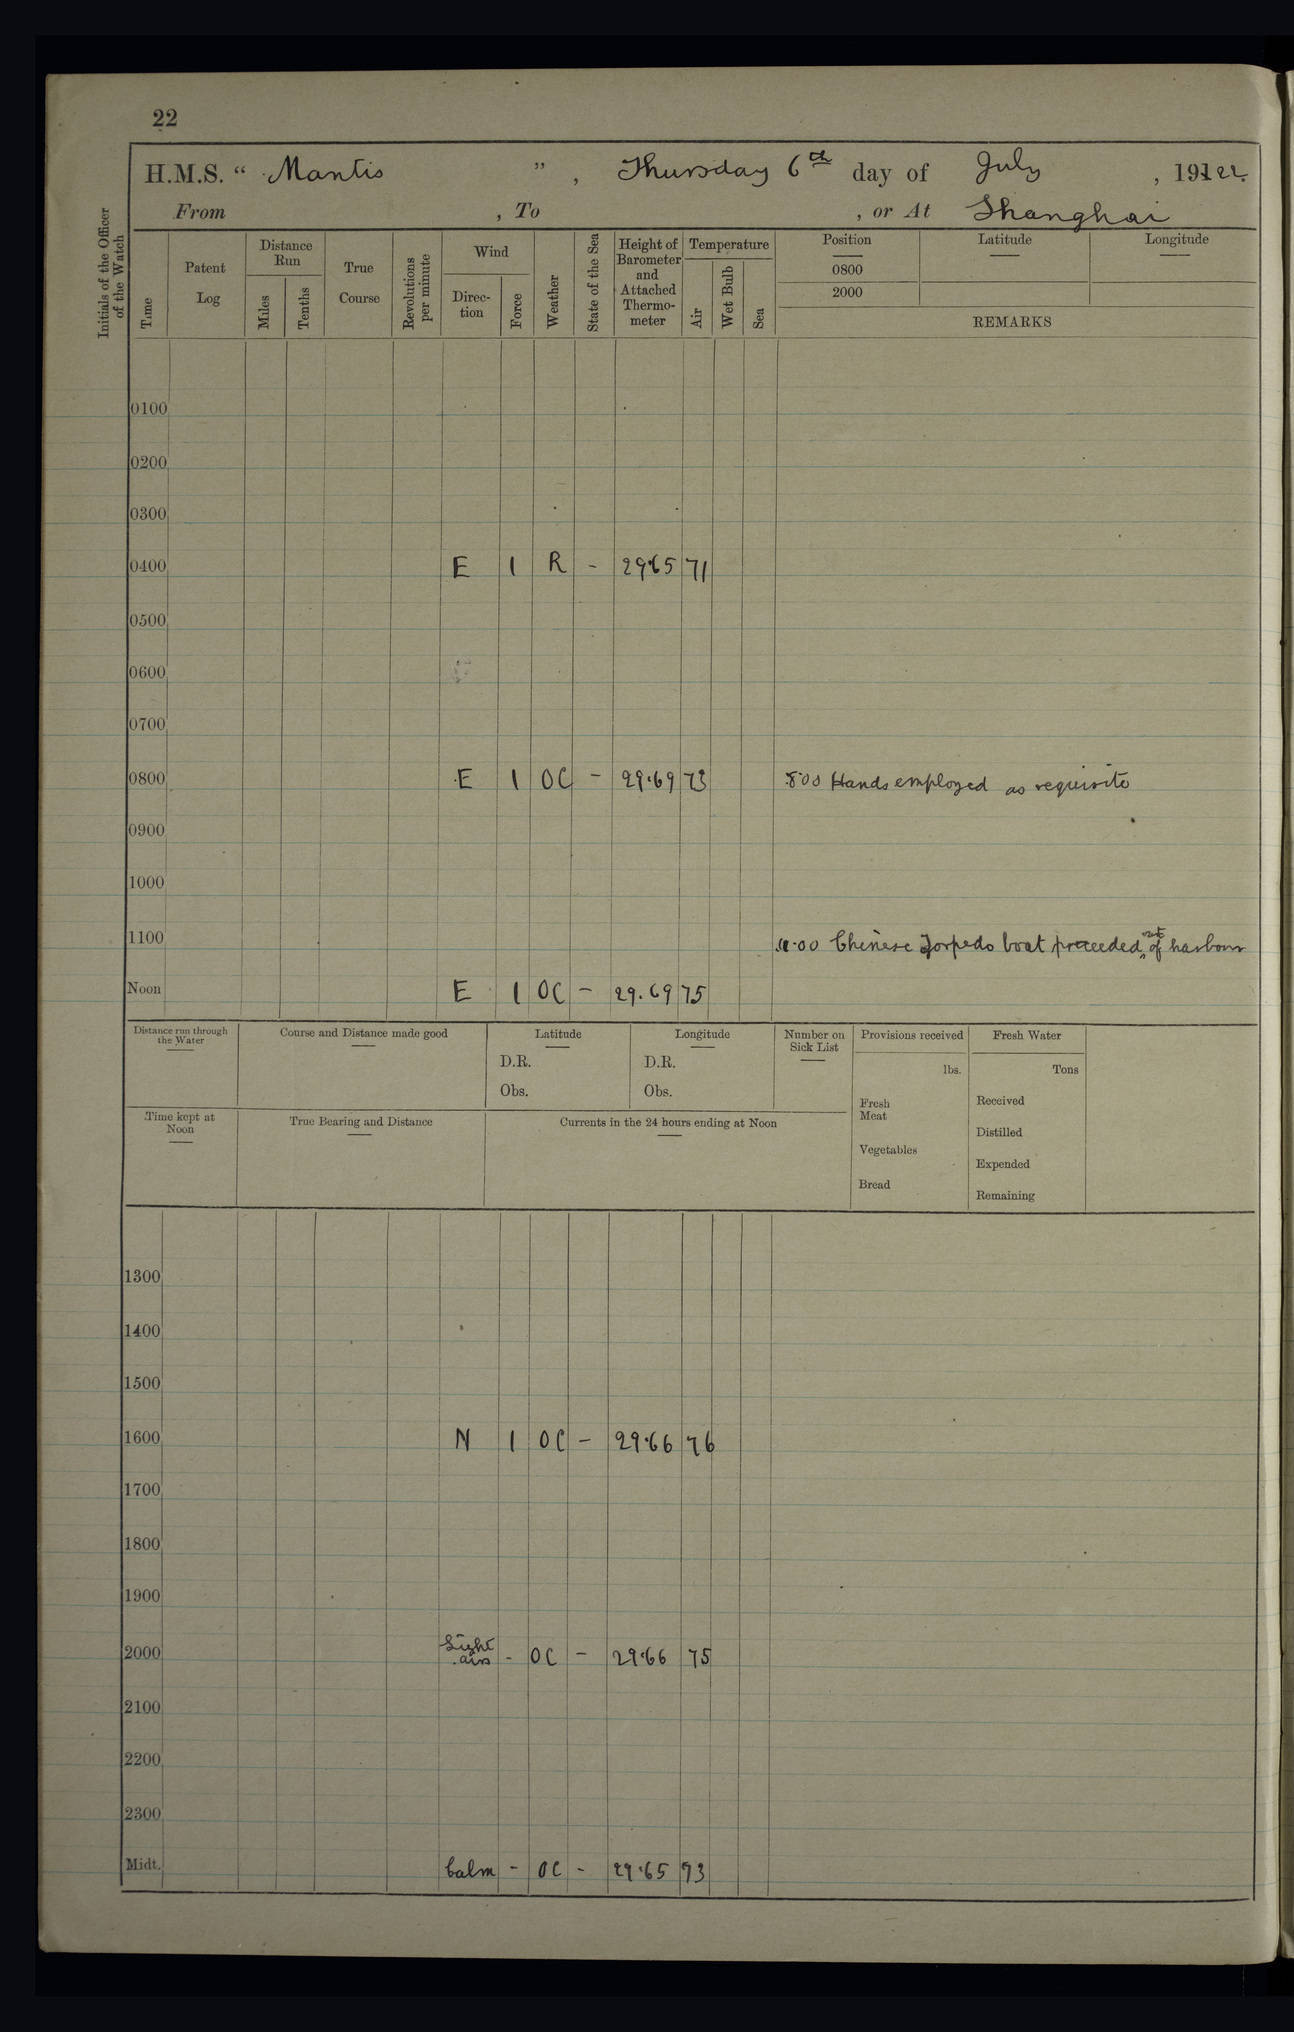 22
H.M.S. “ Mantis ” , Thursday 6th day of July , 19122.
From , To , or At Shanghai
Initials of the Officer of the Watch
Time
Patent Log
Distance Run
Miles
Tenths
True Course
Revolutions per minute
Wind
Direc-tion
Force
Weather
State of the Sea
Height of Barometer and Attached Thermo-meter
Temperature
Air
Wet Bulb
Sea
Position
0800
2000
Latitude
Longitude
REMARKS
0100
0200
0300
0400 E 1 R - 29.65 71
0500
0600
0700
0800 E 1 OC - 29.69 73 8.00 Hands employed as requisite
0900
1000
1100 11.00 Chinese Torpedo boat proceeded out of harbour
Noon E 1 OC - 29.69 75
Distance run through the Water
Course and Distance made good
Latitude
D.R.
Obs.
Longitude
D.R.
Obs.
Number on Sick List
Provisions received
lbs.
Fresh Meat
Vegetables
Bread
Fresh Water
Tons
Received
Distilled
Expended
Remaining
Time kept at Noon
True Bearing and Distance
Currents in the 24 hours ending at Noon
1300
1400
1500
1600 N 1 OC - 29.66 76
1700
1800
1900
2000 Light airs - OC - 29.66 75
2100
2200
2300
Midt. Calm - OC - 29.65 73